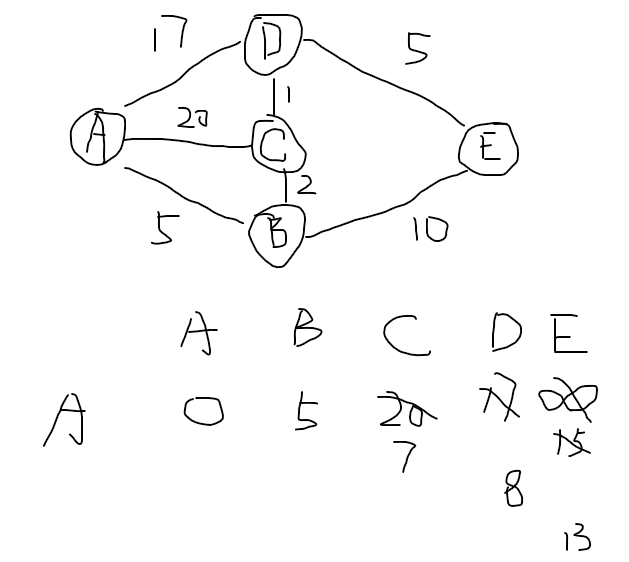 17 D 5
1
A 20 C E
2
5 B 10
A B C D E
A 0 5 20 17 ∞
7 15
8
13